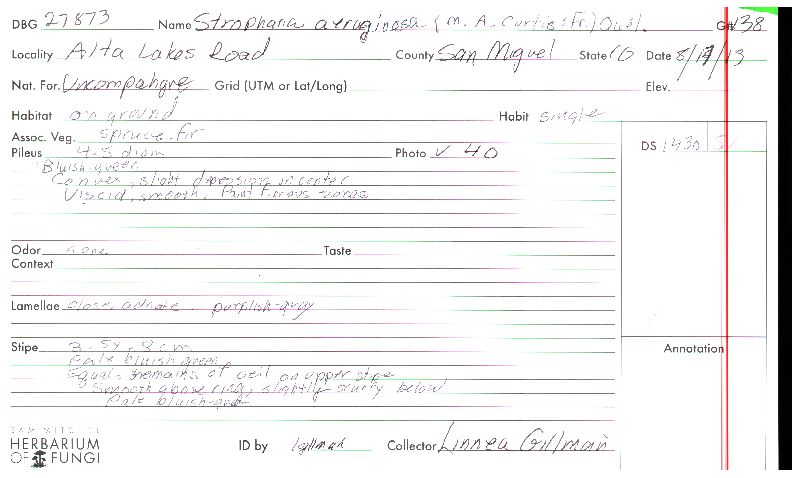 DBG 27873 Name Stropharia aeruginosa (M. A. Curtis: Fr.) Quel. G# 38
Locality Alta Lakes Road County San Miguel State CO Date 8/14/13
Nat. For. Uncompahgre Grid (UTM or Lat/Long) Elev.
Habitat on ground Habit single
Assoc. Veg. spruce-fir
Pileus 4-5 diam Photo ✓ 40
DS 1430
Bluish-green
Convex, slight depression in center
Viscid, smooth,
Odor none Taste
Context
Lamellae close, adnate purplish-gray
Stipe 3-5x.8cm
Pale bluish green
Equal, remains of veil on upper stipe
Smooth above ring, slightly scurfy below
Pale bluish-green
Annotation
SAM MITCHEL
HERBARIUM
OF FUNGI
ID by lgillman Collector Linnea Gillman